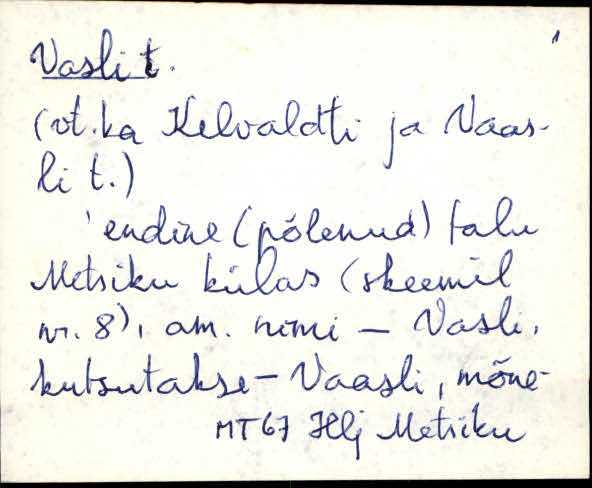 Vasli t.
(vt. ka Kelvaldti ja Vaas-
li t.)
'endine (põlenud) talu
Metsiku külas (skeemil
nr. 8), am. nimi – Vasli,
kutsutakse – Vaasli, mõne-
MT 67 Hlj Metsiku